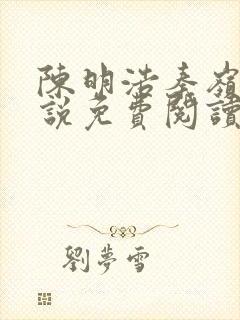 陳明浩秦嶺
說免費閱讀
劉夢雪